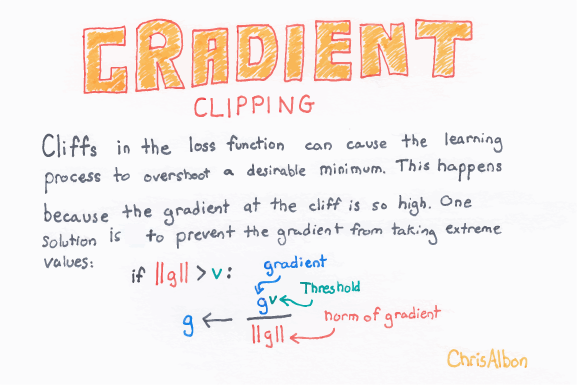 GRADIENT
CLIPPING
Cliffs in the loss function can cause the learning
process to overshoot a desirable minimum. This happens
because the gradient at the cliff is so high. One
solution is to prevent the gradient from taking extreme
values:
if ||g|| > v:
gradient
Threshold
g ← gv / ||g||
norm of gradient
ChrisAlbon